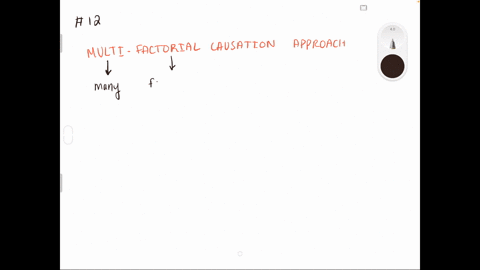 #12
MULTI-FACTORIAL CAUSATION APPROACH
many f